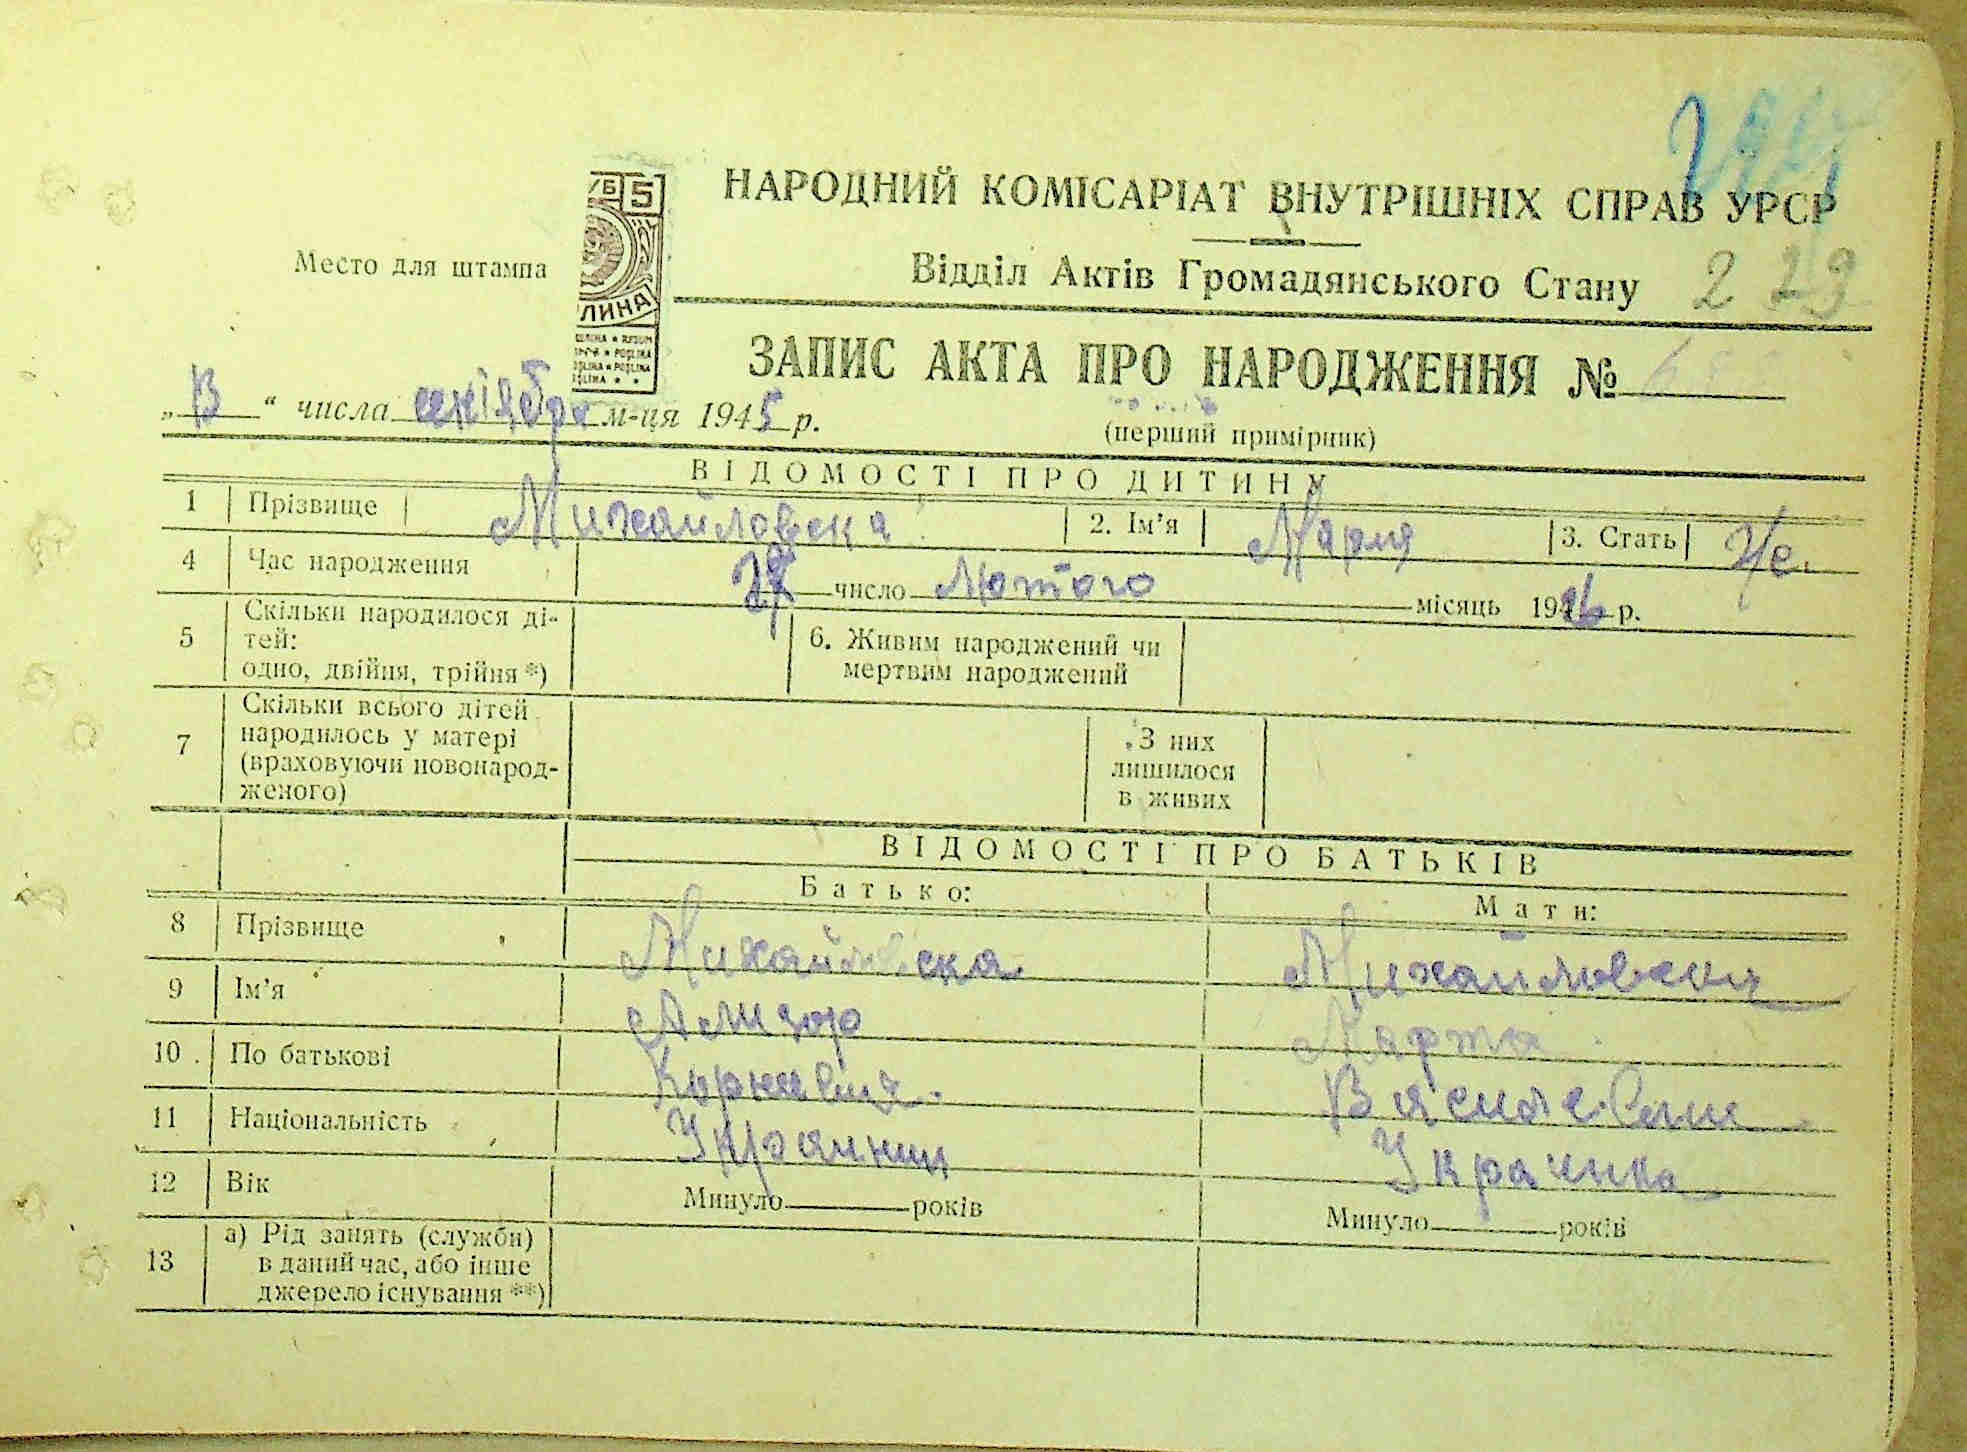 НАРОДНИЙ КОМІСАРІАТ ВНУТРІШНІХ СПРАВ УРСР
Место для штампа
5
ЛИНА
Відділ Актів Громадянського Стану 223
ЗАПИС АКТА ПРО НАРОДЖЕННЯ №
„13“ числа октября м-ця 1945 р.
(перший примірник)
ВІДОМОСТІ ПРО ДИТИНУ
1 Прізвище Михайловска 2. Ім’я Мария 3. Стать Же.
4 Час народження число Лютого місяць 1926 р.
5 Скільки народилося ді-
тей:
одно, двійня, трійня *)
6. Живим народжений чи
мертвим народжений
7 Скільки всього дітей
народилось у матері
(враховуючи новонарод-
женого)
З них
лишилося
в живих
ВІДОМОСТІ ПРО БАТЬКІВ
Батько: Мати:
8 Прізвище Михайловска Михайловская
9 Ім’я Марта
10 По батькові
11 Національність Украинец Украинка
12 Вік Минуло років Минуло років
13 а) Рід занять (служби)
в даний час, або інше
джерело існування **)